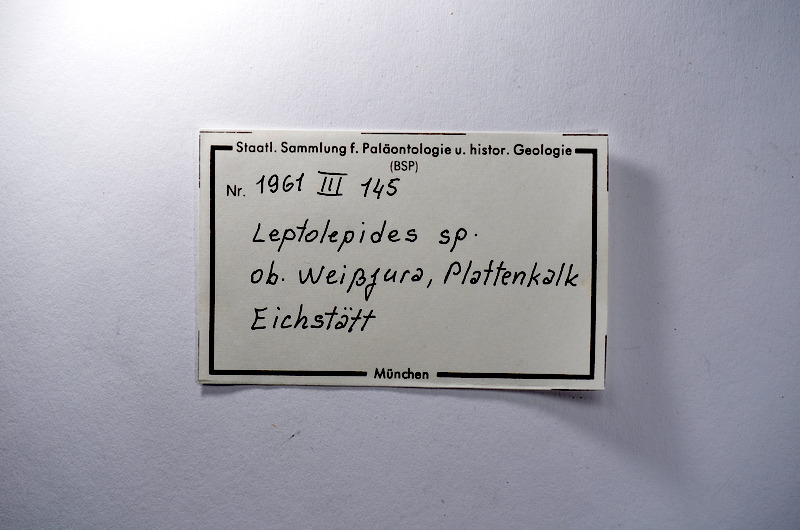 Staatl. Sammlung f. Paläontologie u. histor. Geologie
(BSP)
Nr. 1961 III 145
Leptolepides sp.
ob. Weißjura, Plattenkalk
Eichstätt
München